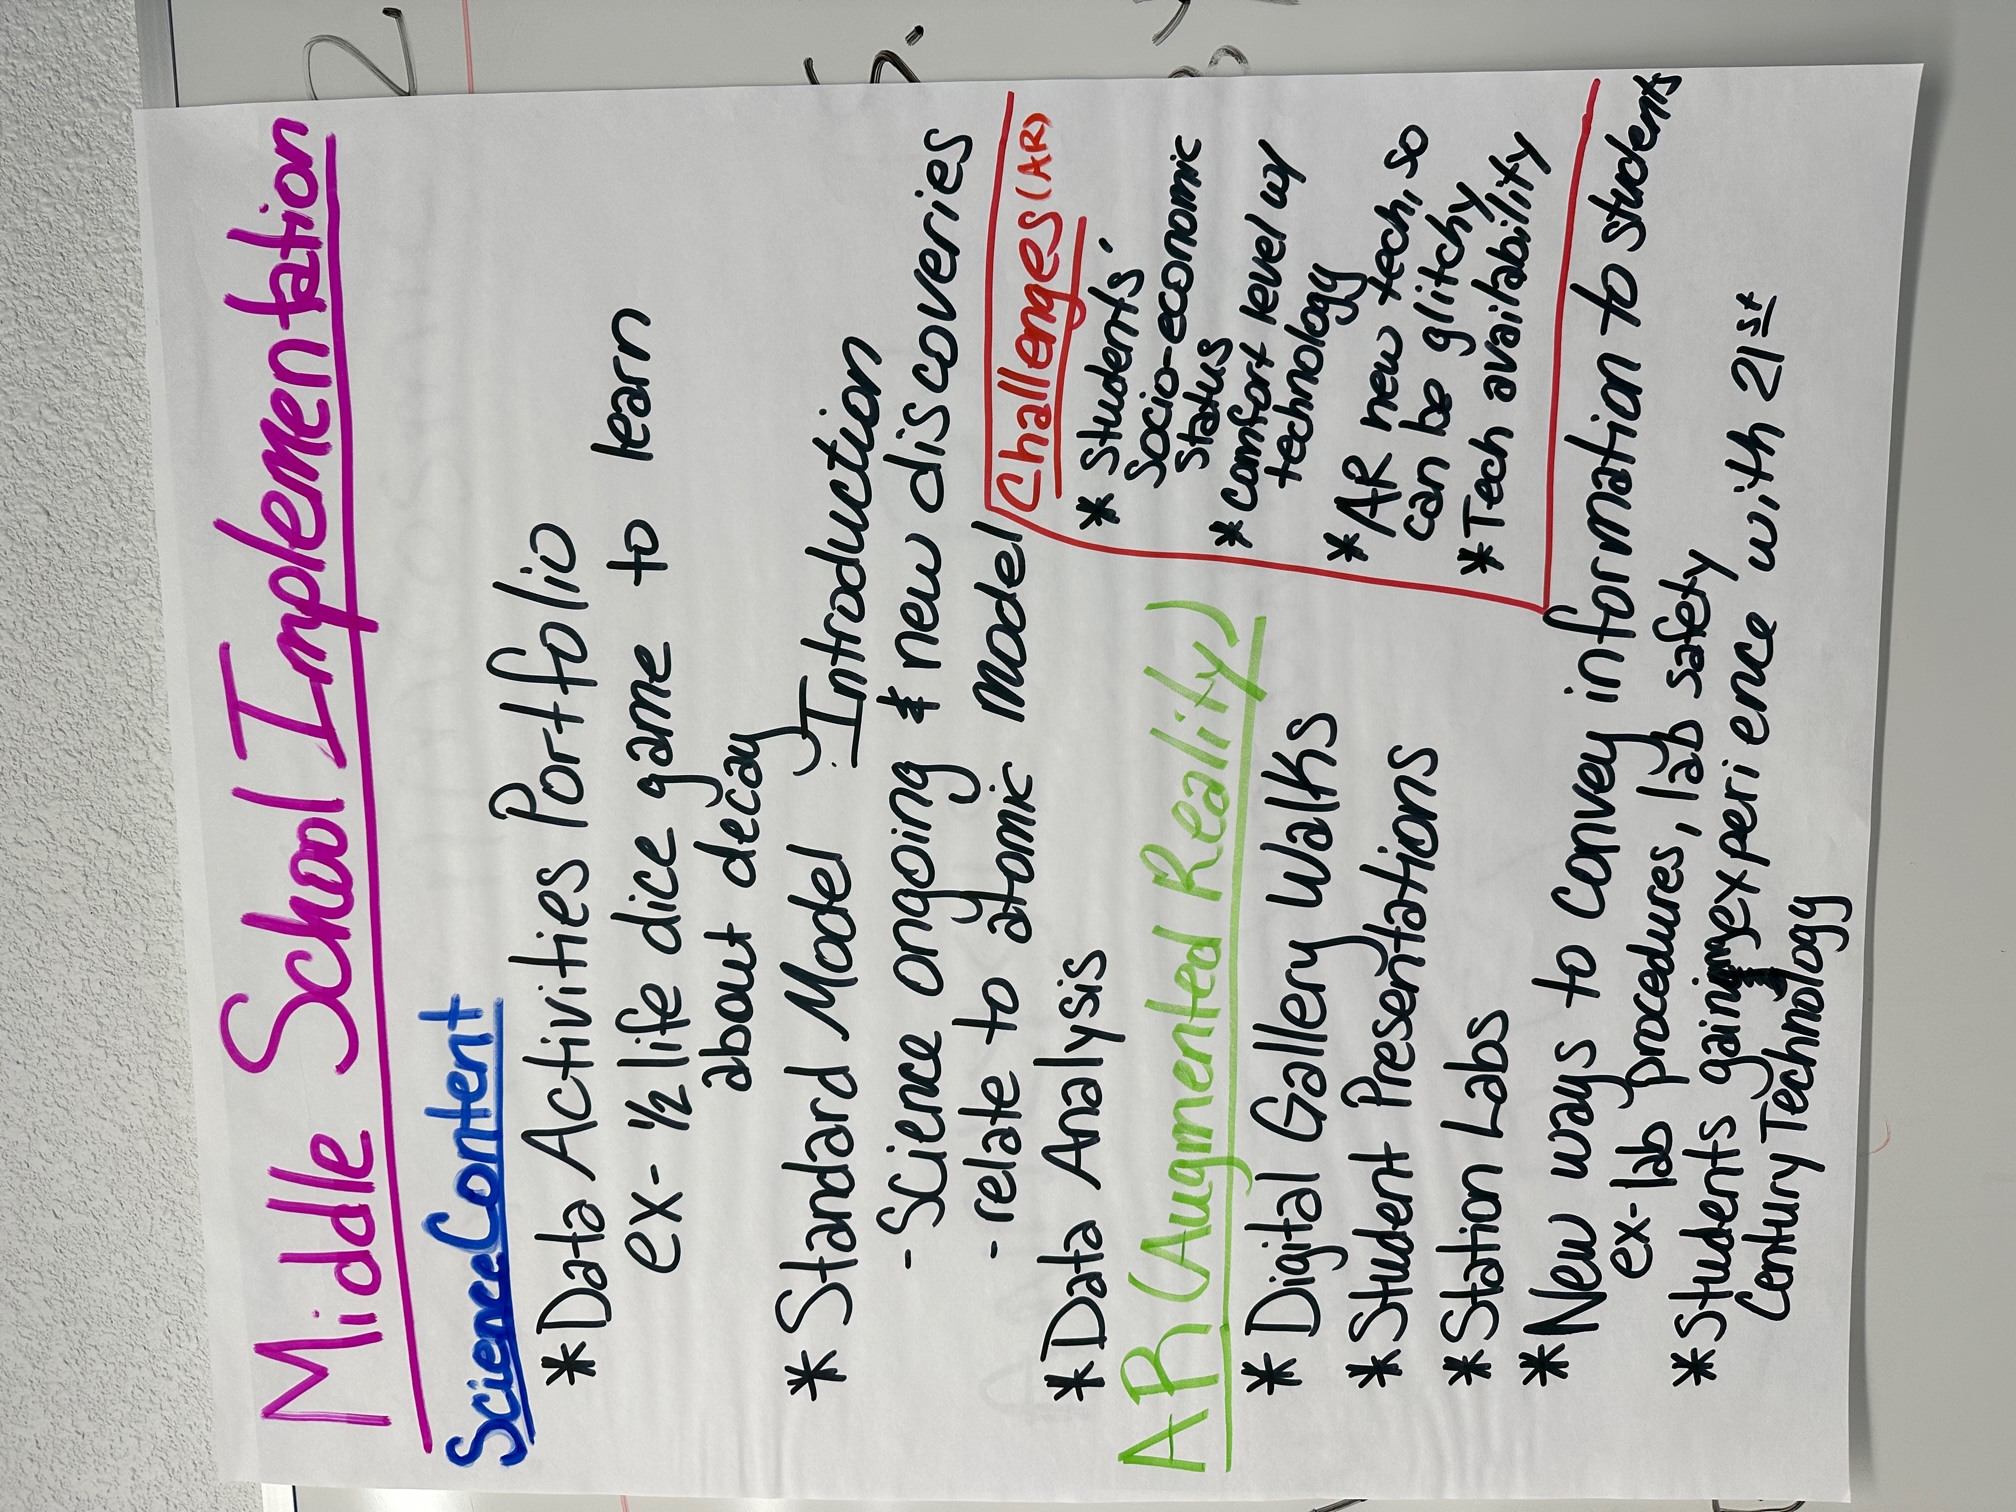 Middle School Implementation
Science Content
* Data Activities Portfolio
ex- 1/2 life dice game to learn
about decay
* Standard Model Introduction
- Science ongoing & new discoveries
- relate to atomic model
* Data Analysis
AR (Augmented Reality)
* Digital Gallery Walks
* Student Presentations
* Station Labs
* New ways to convey information to students
ex- lab procedures, lab safety
* Students gaining experience with 21st
Century Technology
Challenges (AR)
* Students'
Socio-economic
Status
* comfort level w/
technology
* AR new tech, so
can be glitchy
* Tech availability